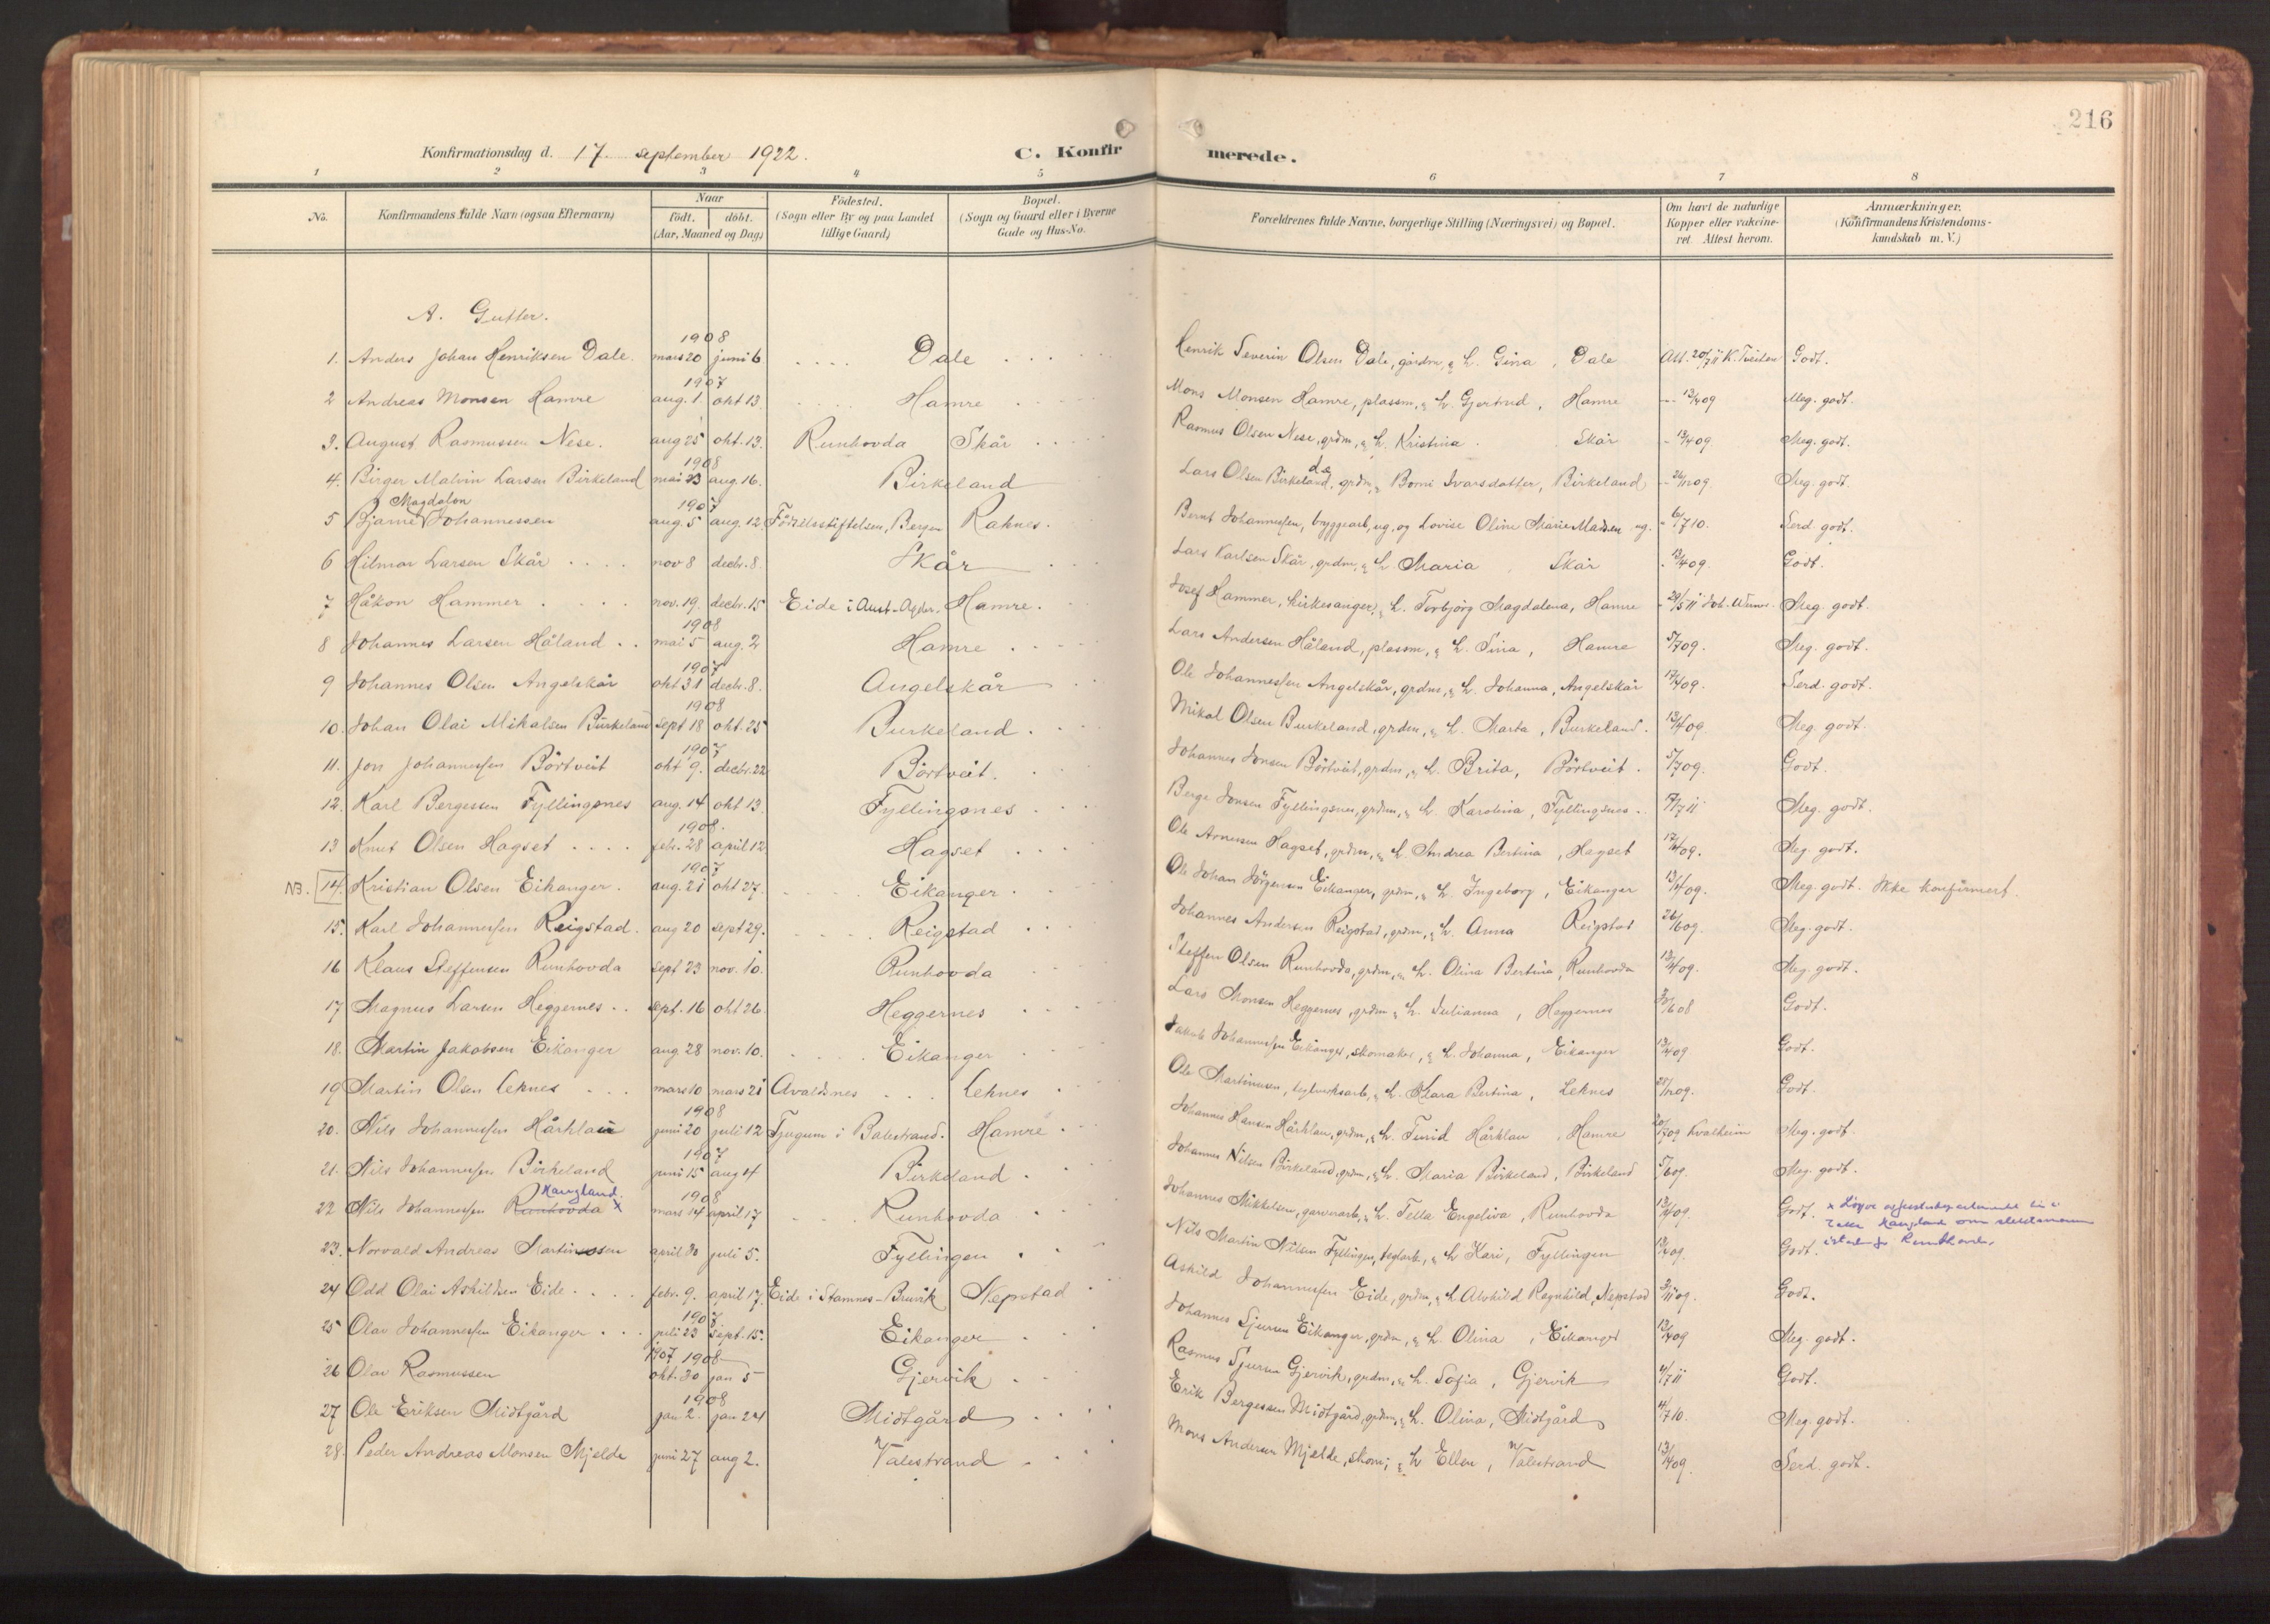 216
Konfirmationsdag d. 17. september 1922. C. Konfirmerede.
1 2 3 4 5 6 7 8
No. Konfirmandens fulde Navn (ogsaa Efternavn) Naar födt. döbt. (Aar, Maaned og Dag) Födested. (Sogn eller By og paa Landet tillige Gaard) Bopæl. (Sogn og Gaard eller i Byerne Gade og Hus-No. Forældrenes fulde Navne, borgerlige Stilling (Næringsvei) og Bopæl. Om havt de naturlige Kopper eller vakcineret. Attest herom. Anmærkninger. (Konfirmandens Kristendomskundskab m. V.)
A. Gutter.
1908
1. Anders Johan Henriksen Dale. mars 20 juni 6 Dale Henrik Severin Olsen Dale, gårdm, & h. Gina, Dale Att. 20/7 11 K. Tveiten Godt.
1907
2 Andreas Monsen Hamre aug. 1. okt 13. Hamre Mons Monsen Hamre, plassm, & h. Gjertrud, Hamre 13/4 09 Meg. godt.
3. August Rasmussen Nese. aug 25 okt. 13. Runhovda Skår Rasmus Olsen Nese, grdm, & h. Kristina. Skår 13/4 09. Meg. godt.
1908
4. Birger Malvin Larsen Birkeland mai 23 aug. 16. Birkeland Lars Olsen Birkeland, grdm, & Borni Ivarsdatter, Birkeland 09. Meg. godt.
Magdalon 1907
5 Bjarne Johannessen aug. 5 aug. 12 Födselsstiftelsen, Bergen Raknes. Bernt Johannessen, bryggearb, ug, og Lovise Oline Marie Madsen ug. 6/7 10. Serd godt.
6 Hilmar Larsen Skår nov 8 decbr. 8. Skår Lars Karlsen Skår, grdm, & h. Maria, Skår 13/4 09. Godt.
7 Håkon Hammer nov. 19. decbr. 15 Eide i Aust-Agder. Hamre. Josef Hammer, kirkesanger, & h. Torbjörg Magdalena, Hamre 29/5 11 Joh. Meg. godt.
1908
8 Johannes Larsen Håland mai 5 aug. 2 Hamre Lars Andersen Håland, plassm, & h. Sina, Hamre 5/7 09. Meg. godt.
1907
9 Johannes Olsen Angelskår okt 31 decbr. 8. Angelskår Ole Johannessen Angelskår, grdm, & h. Johanna, Angelskår 17/4 09. Serd. godt.
1908
10. Johan Olai Mikalsen Burkeland sept 18 okt. 25 Burkeland. Mikal Olsen Burkeland, grdm, & h. Marta, Burkeland. 13/4 09 Meg. godt.
1907
11. Jon Johannessen Börtveit okt 9. decbr. 22 Börtveit. Johannes Jonsen Börtveit, grdm, & h. Brita, Börtveit. 5/7 09. Godt.
12. Karl Bergessen Fyllingsnes aug. 14 okt 13 Fyllingsnes Berge Jonsen Fyllingsnes, grdm, & h. Karolina, Fyllingsnes. 11 Meg. godt.
1908.
13 Knut Olsen Hagset febr. 28 april 12 Hagset Ole Arnesen Hagset, grdm, & h. Andrea Bertina, Hagset 17/4 09. Meg. godt.
1907
NB. 14. Kristian Olsen Eikanger. aug. 21 okt 27. Eikanger. Ole Johan Jörgensen Eikanger, grdm, & h. Ingeborg, Eikanger 13/4 09. Meg. godt. Ikke konfirmert.
15. Karl Johannessen Reigstad. aug 20 sept 29. Reigstad Johannes Andersen Reigstad, grdm, & h. Anna Reigstad 26/6 09. Meg. godt.
16 Klaus Steffensen Runhovda sept 23 nov. 10. Runhovda Steffen Olsen Runhovda, grdm, & h. Olina Bertina, Runhovda 13/4 09. Meg. godt.
17 Magnus Larsen Heggernes sept. 16 okt 26. Heggernes Lars Monsen Heggernes, grdm & h. Julianna, Heggernes 08 Godt.
18. Martin Jakobsen Eikanger aug. 28 nov. 10. Eikanger Jakob Johannessen Eikanger, skomaker, & h. Johanna, Eikanger 13/4 09 Godt.
19 Martin Olsen Leknes mars 10 mars 21 Avaldsnes Leknes Ole Martinusen, teglverksarb, & h. Klara Bertina, Leknes 09. Godt.
1908
20. Nils Johannessen Hårklau juni 20 juli 12 Tjugum i Balestrand. Hamre Johannes Hansen Hårklau, grdm, & h. Turid Hårklau, Hamre 09 Kvalheim Meg. godt.
1907
21. Nils Johannessen Birkeland juni 15 aug 4 Birkeland. Johannes Nilsen Birkeland, grdm, & h. Maria Birkeland, Birkeland 5/6 09. Meg. godt.
Haugland. 1908
22 Nils Johannessen Runhovda x mars 14 april 17 Runhovda Johannes Mikkelsen, garverarb, & h. Tella Engeliva, Runhovda 13/4 09. Godt. x
Haugland som slektsnavn
23. Norvald Andreas Martinessen april 30 juli 5. Fyllingen Nils Martin Nilsen Fyllingen, teglarb, & h Kari, Fyllingen 13/4 09. Godt.
24 Odd Olai Askildsen Eide. febr. 9. april 17. Eide i Stamnes-Bruvik Nepstad Askild Johannessen Eide, grdm, & h Alvhild Ragnhild, Nepstad 09. Godt.
1907.
25 Olav Johannessen Eikanger juli 23 sept. 15. Eikanger Johannes Sjursen Eikanger, grdm, & h. Olina, Eikanger 13/4 09 Meg. godt.
1907 1908
26 Olav Rasmussen okt. 30 jan 5 Gjervik Rasmus Sjursen Gjervik, grdm, & h. Sofia, Gjervik 4/7 11 Godt.
1908
27 Ole Eriksen Midtgård jan 2. jan 24 Midtgård Erik Bergessen Midtgård, grdm, & h. Olina, Midtgård 4/7 10. Meg. godt.
28. Peder Andreas Monsen Mjelde juni 27 aug 2. Valestrand Mons Andersen Mjelde, skom; & h Ellen, Valestrand 13/4 09. Serd. godt.